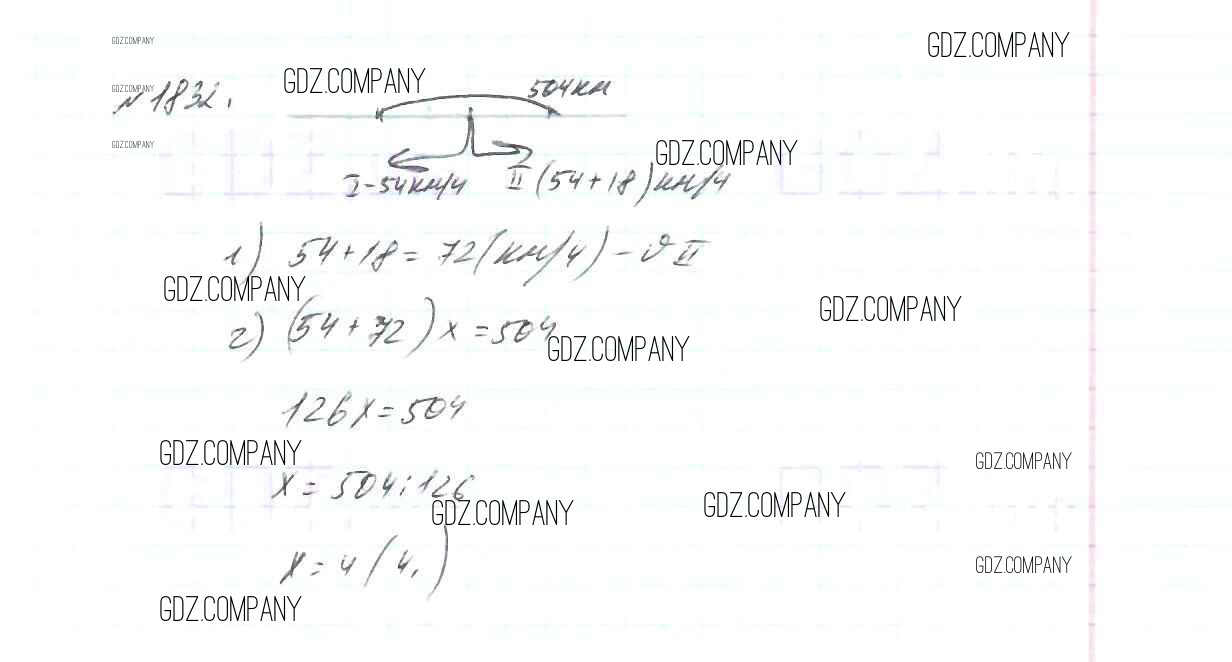 GDZ.COMPANY
GDZ.COMPANY
GDZ.COMPANY
GDZ.COMPANY
№1832.
504км
GDZ.COMPANY
GDZ.COMPANY
I-54км/ч II (54+18)км/ч
1) 54+18=72(км/ч)-υ II
GDZ.COMPANY
GDZ.COMPANY
2) (54+72)x=504
GDZ.COMPANY
126x=504
GDZ.COMPANY
GDZ.COMPANY
x=504:126
GDZ.COMPANY
GDZ.COMPANY
x=4(ч.)
GDZ.COMPANY
GDZ.COMPANY